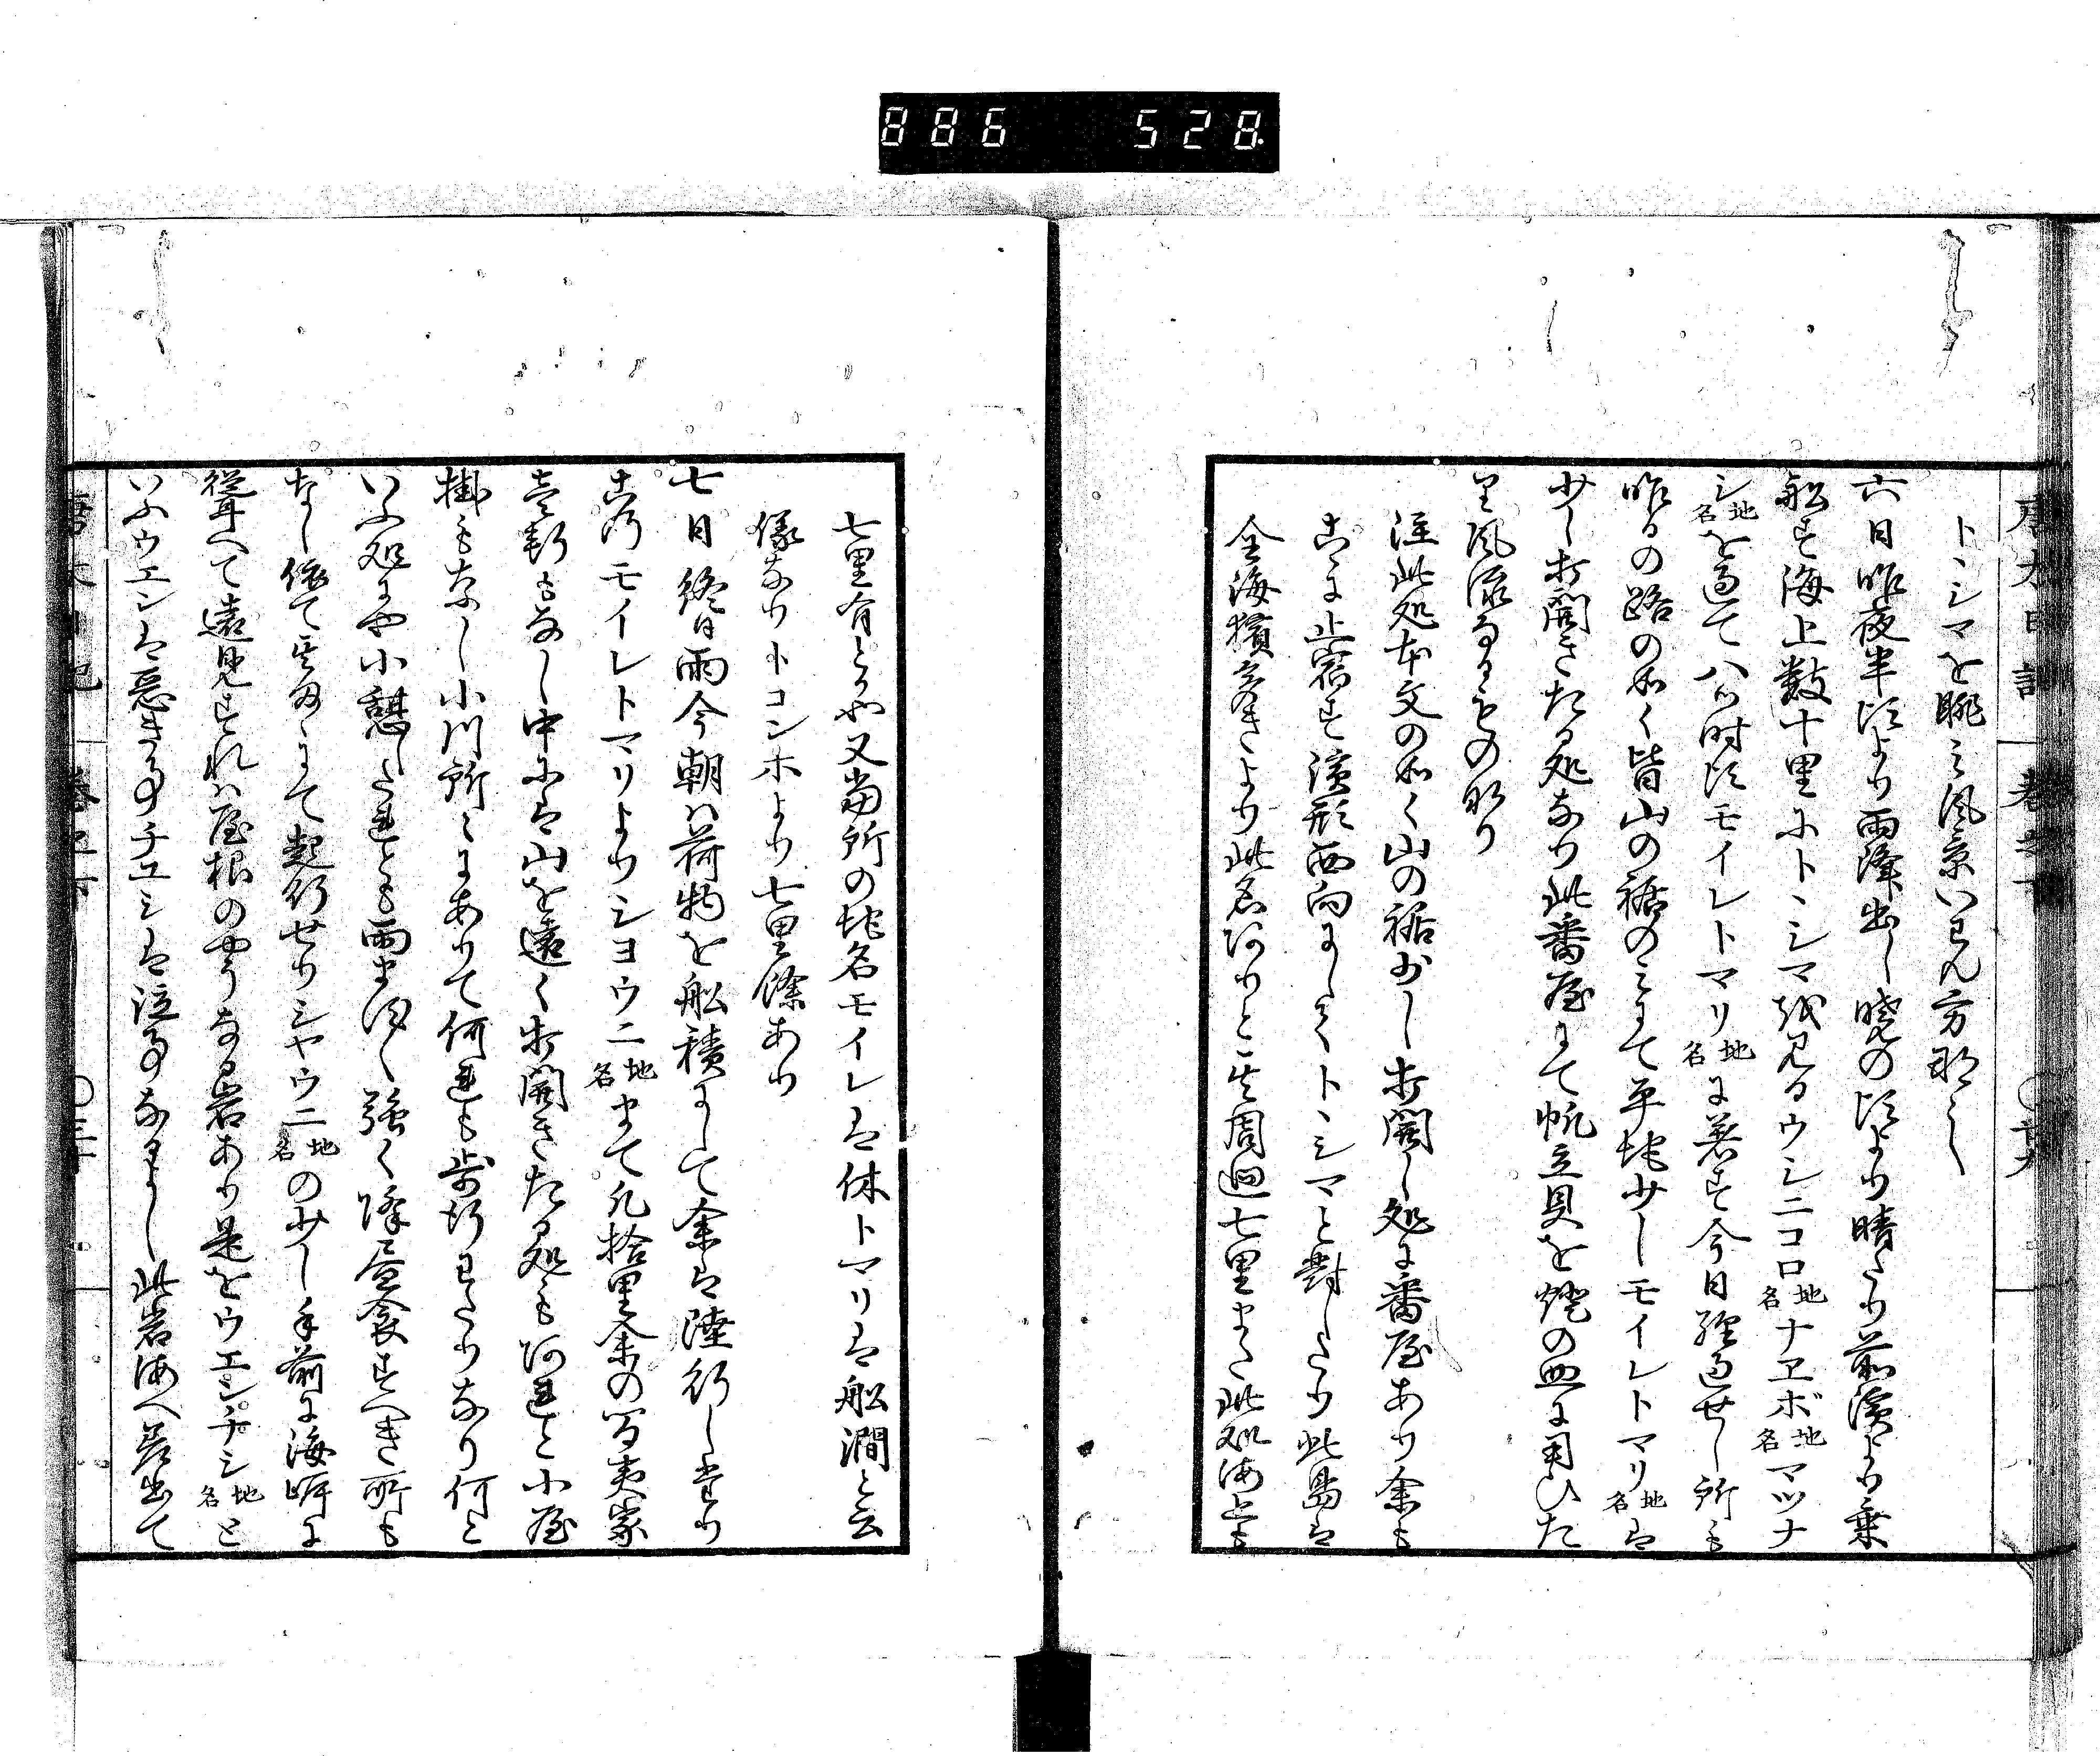 886 528
唐太日記 巻之下
トヽシマを眺ミ風景いはん方なし
六日昨夜半頃より雨降出し暁の頃より晴たり前濱より乗
船す海上数十里にトヽシマ超見るウシニコロ地名ナヱボ地名マツナ
シ地名を過て八ツ時頃モイレトマリ地名に着す今日經過せし所も
昨日の路の如く皆山の裾のミにて平地少しモイレトマリ地名は
少し打開きたる処なり此番屋にて帆立貝を燈の皿に用ひた
里風流なるもの那り
註此処本文の如く山の裾少し打開し処に番屋あり余も
爰に止宿す濱形西向にしてトヽシマと對したり此島は
全海獺多きより此名ありと其周廻七里また此処海上も
七里有とか又當所の地名モイレは休トマリは船澗と云
儀なりトコンホより七里餘あり
七日終日雨今朝ハ荷物を船積にして余は陸行したり
爰乃モイレトマリよりシヨウニ地名まて凡拾里余の間夷家
壱軒もなし中には山を遠く打開きたる処も阿れと小屋
掛もなし小川所々にありて何れも歩行わたりなり何と
いふ処にや小憩したれとも雨ます〱強く降昼食すへき所も
なし依て其侭にて起行せりシヤウニ地名の少し手前に海岸に
聳へて遠見すれハ屋根のやうなる岩あり是をウエンチシ地名と
いふウエンは悪き事チエシは泣事なるよし此岩海へ差出て
唐太日記 巻之下 〇三十